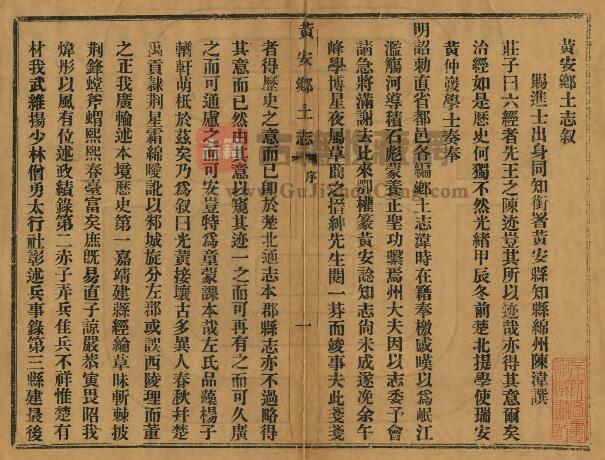 黃安鄉土志叙
賜進士出身同知銜署黃安縣知縣綿州陳漳撰
莊子曰六經者先王之陳迹豈其所以迹哉亦得其意爾矣
治經如是歷史何獨不然光緒甲辰冬前楚北提學使瑞安
黃仲弢學士奏奉
明詔勅直省都邑各編鄉土志漳時在籍奉檄感嘆以為岷江
濫觴河導積石彪蒙養正聖功繫焉州大夫因以志委予會
請急將滿謝去比來鄂權篆黃安諗知志尚未成遂浼余午
峰學博星夜屬草商之搢紳先生閱一朞而竣事夫此戔戔
者得歷史之意而已卽於楚北通志本郡縣志亦不過略得
其意而已然由其意以窺其迹一之而可再有之而可久廣
之而可通慮之而可安豈特為童蒙課本哉左氏品藻楊子
輶軒萌柢於茲矣乃為叙曰光黃接壤古多異人春秋幷楚
禹貢隸荆星霜綿曖訛以邾城旋分左部或誤西陵理而董
之正我廣輪述本境歷史第一嘉靖建縣經綸草昧斬棘披
荆鋒螳斧蝟熙熙春臺富矣庶旣易直子諒嚴恭寅畏昭我
煒彤以風有位述政績錄第二赤子弄兵隹兵不祥惟楚有
材我武維揚少林僧勇太行社彭述兵事錄第三縣建最後
黃安鄉土志
序
一